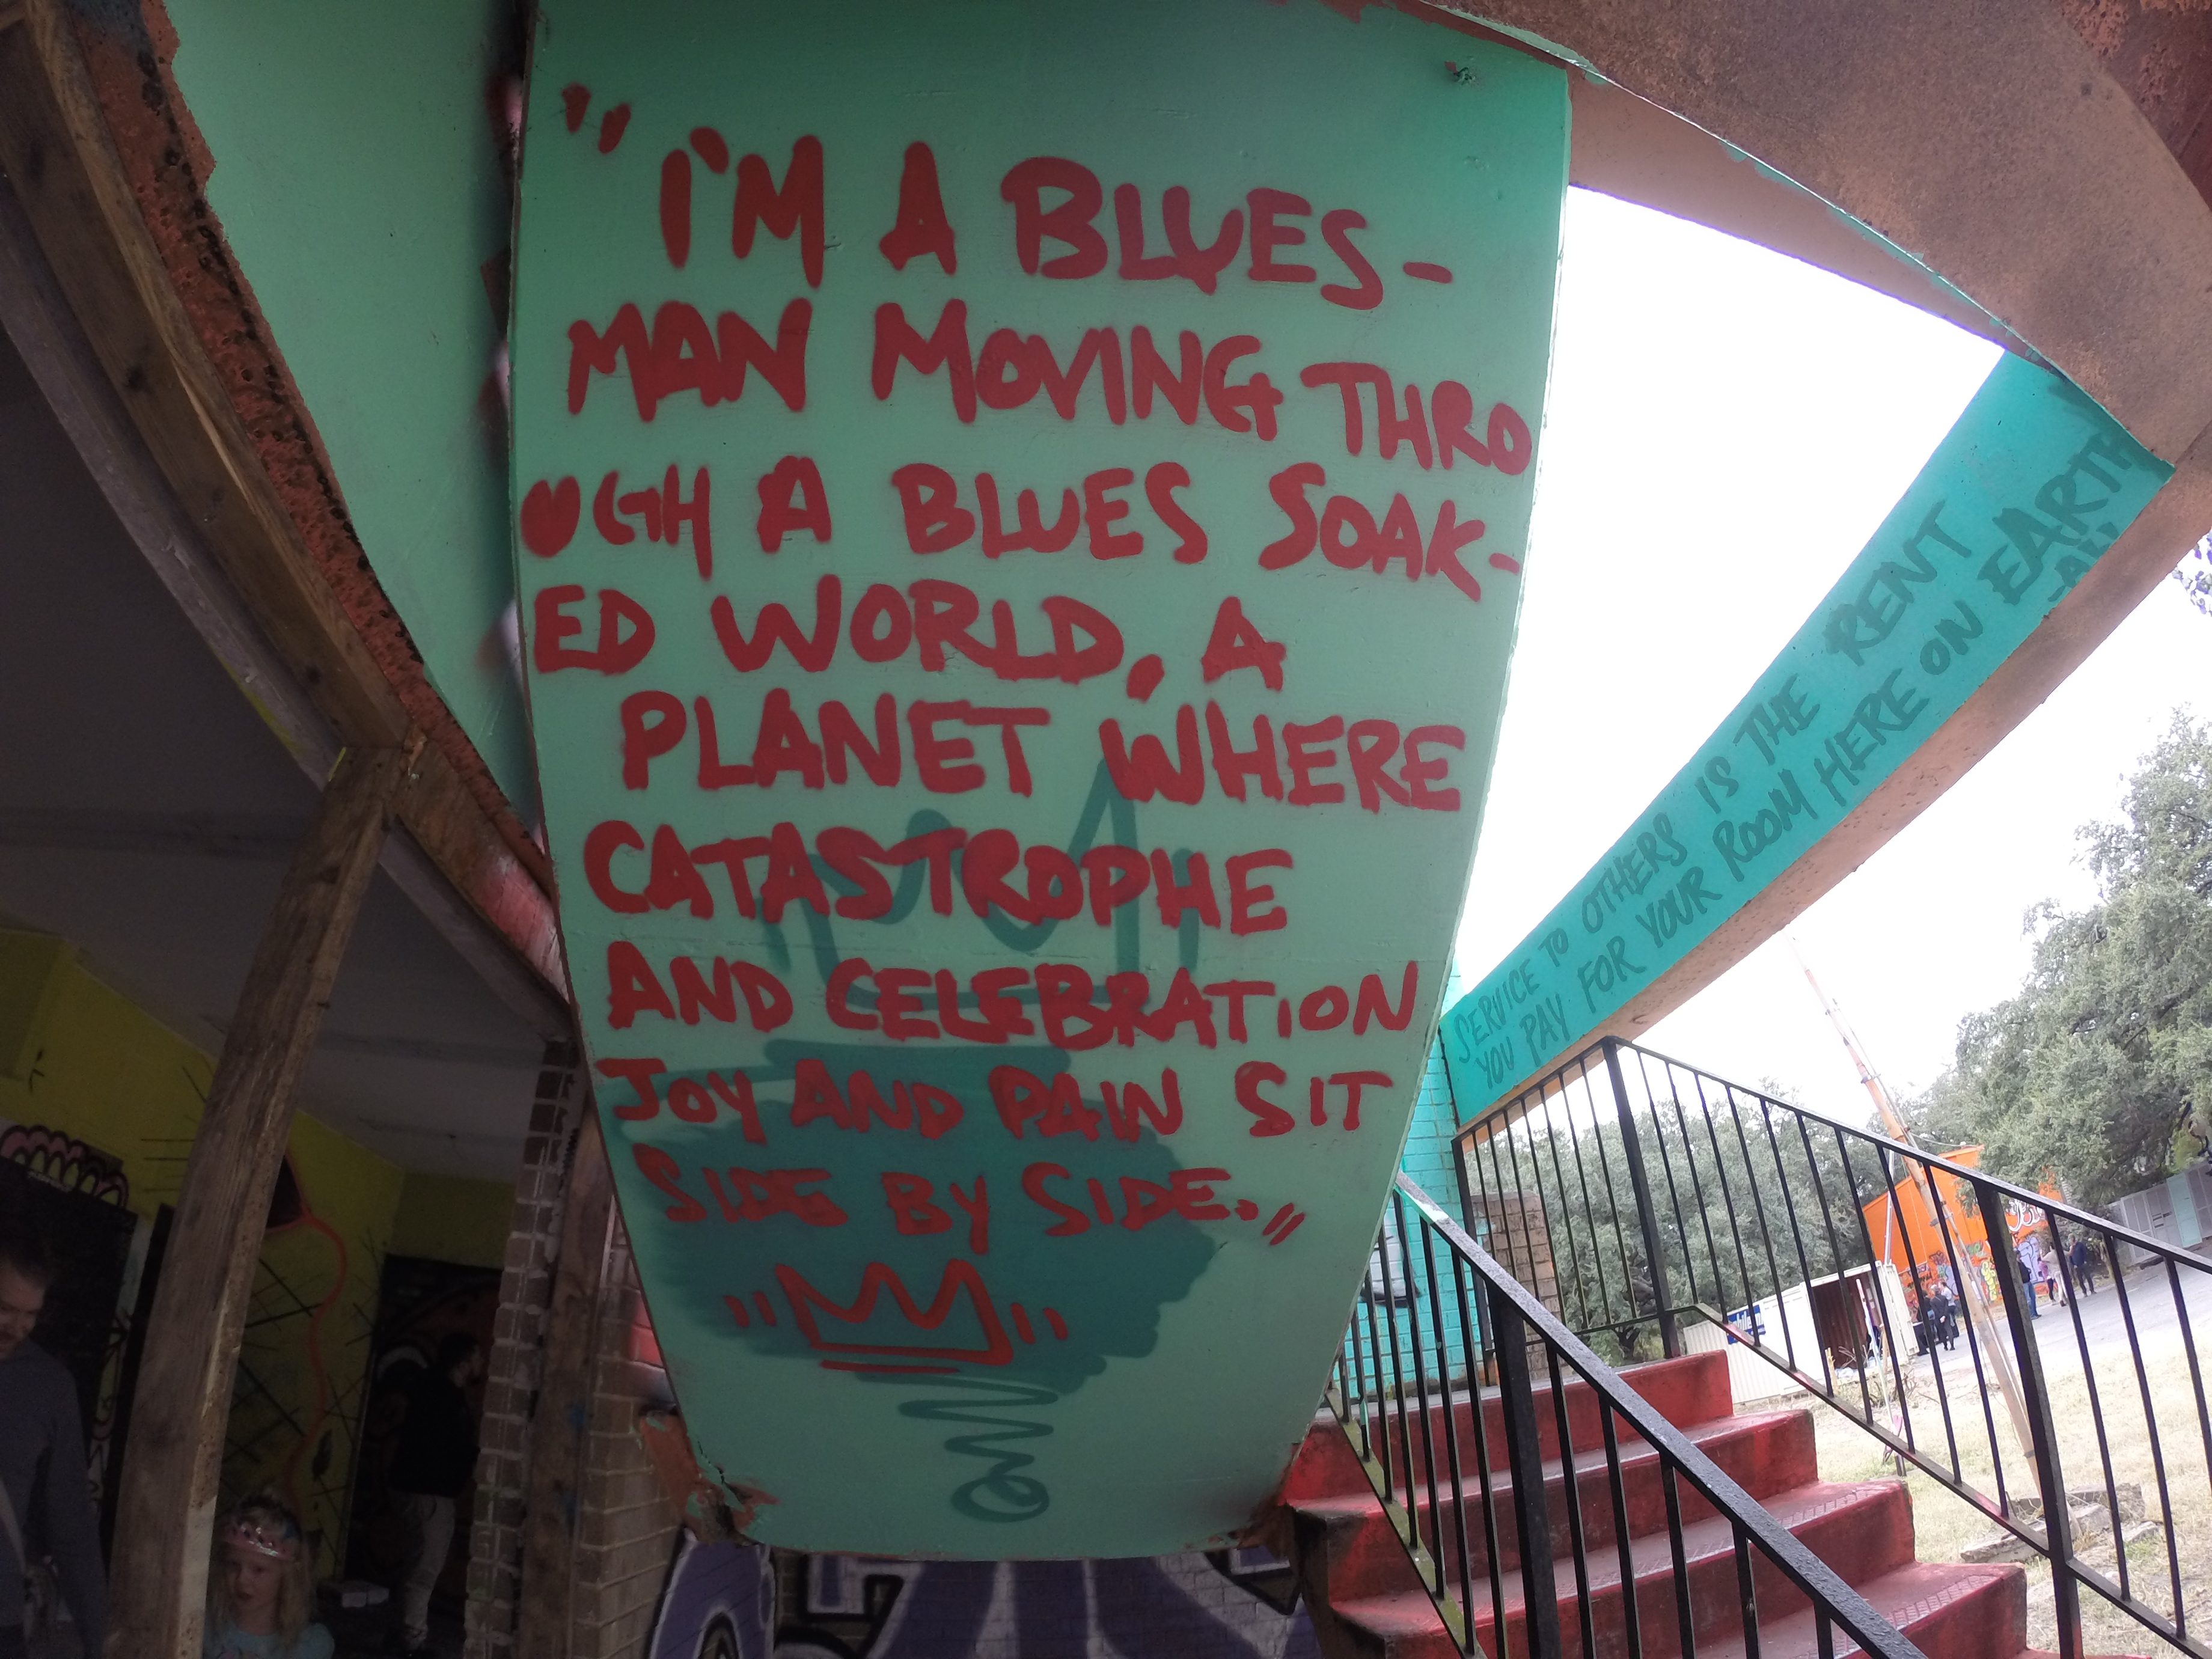 "I'M A BLUES-
MAN MOVING THRO
UGH A BLUES SOAK-
ED WORLD, A
PLANET WHERE
CATASTROPHE
AND CELEBRATION
JOY AND PAIN SIT
SIDE BY SIDE."
SERVICE TO OTHERS IS THE RENT
YOU PAY FOR YOUR ROOM HERE ON EARTH